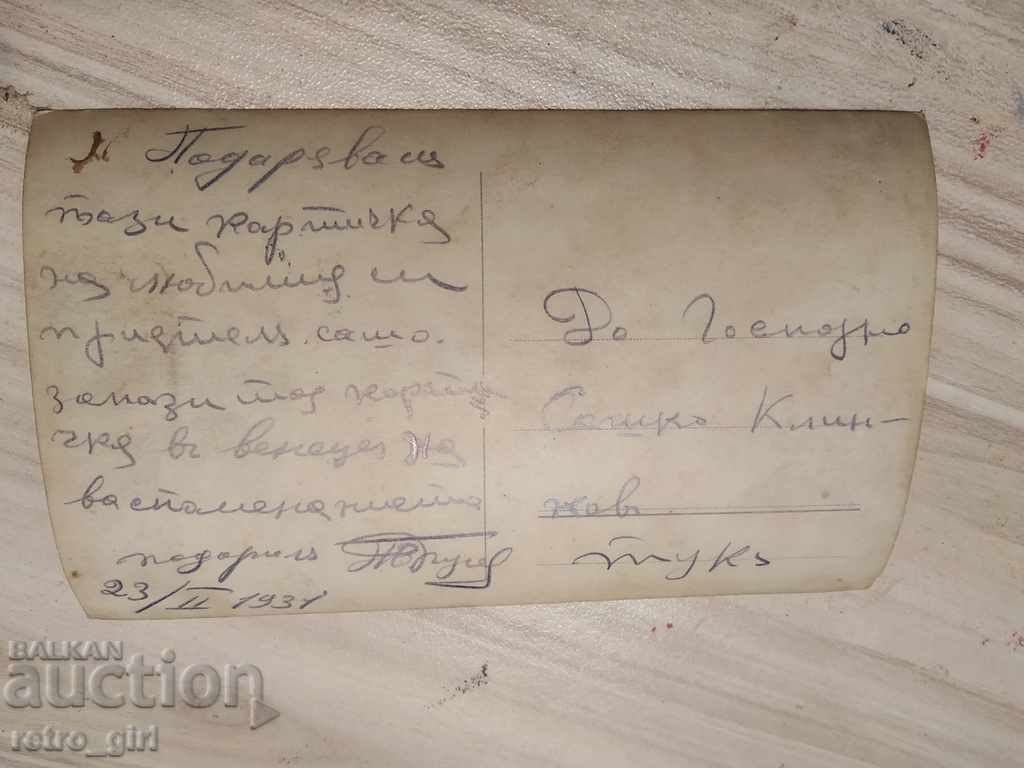 Подарявамъ
тази картичка
на любимия си
приятель сашо.
запази таз карти
чка въ венеца на
васпоменанията
подарилъ
23/II 1931
До Господно
Сашко Клин-
ков
тукъ
BALKAN
auction
retro_girl